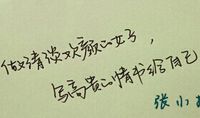 做清淡欢颜的女子，
写高贵的情书给自己
张小